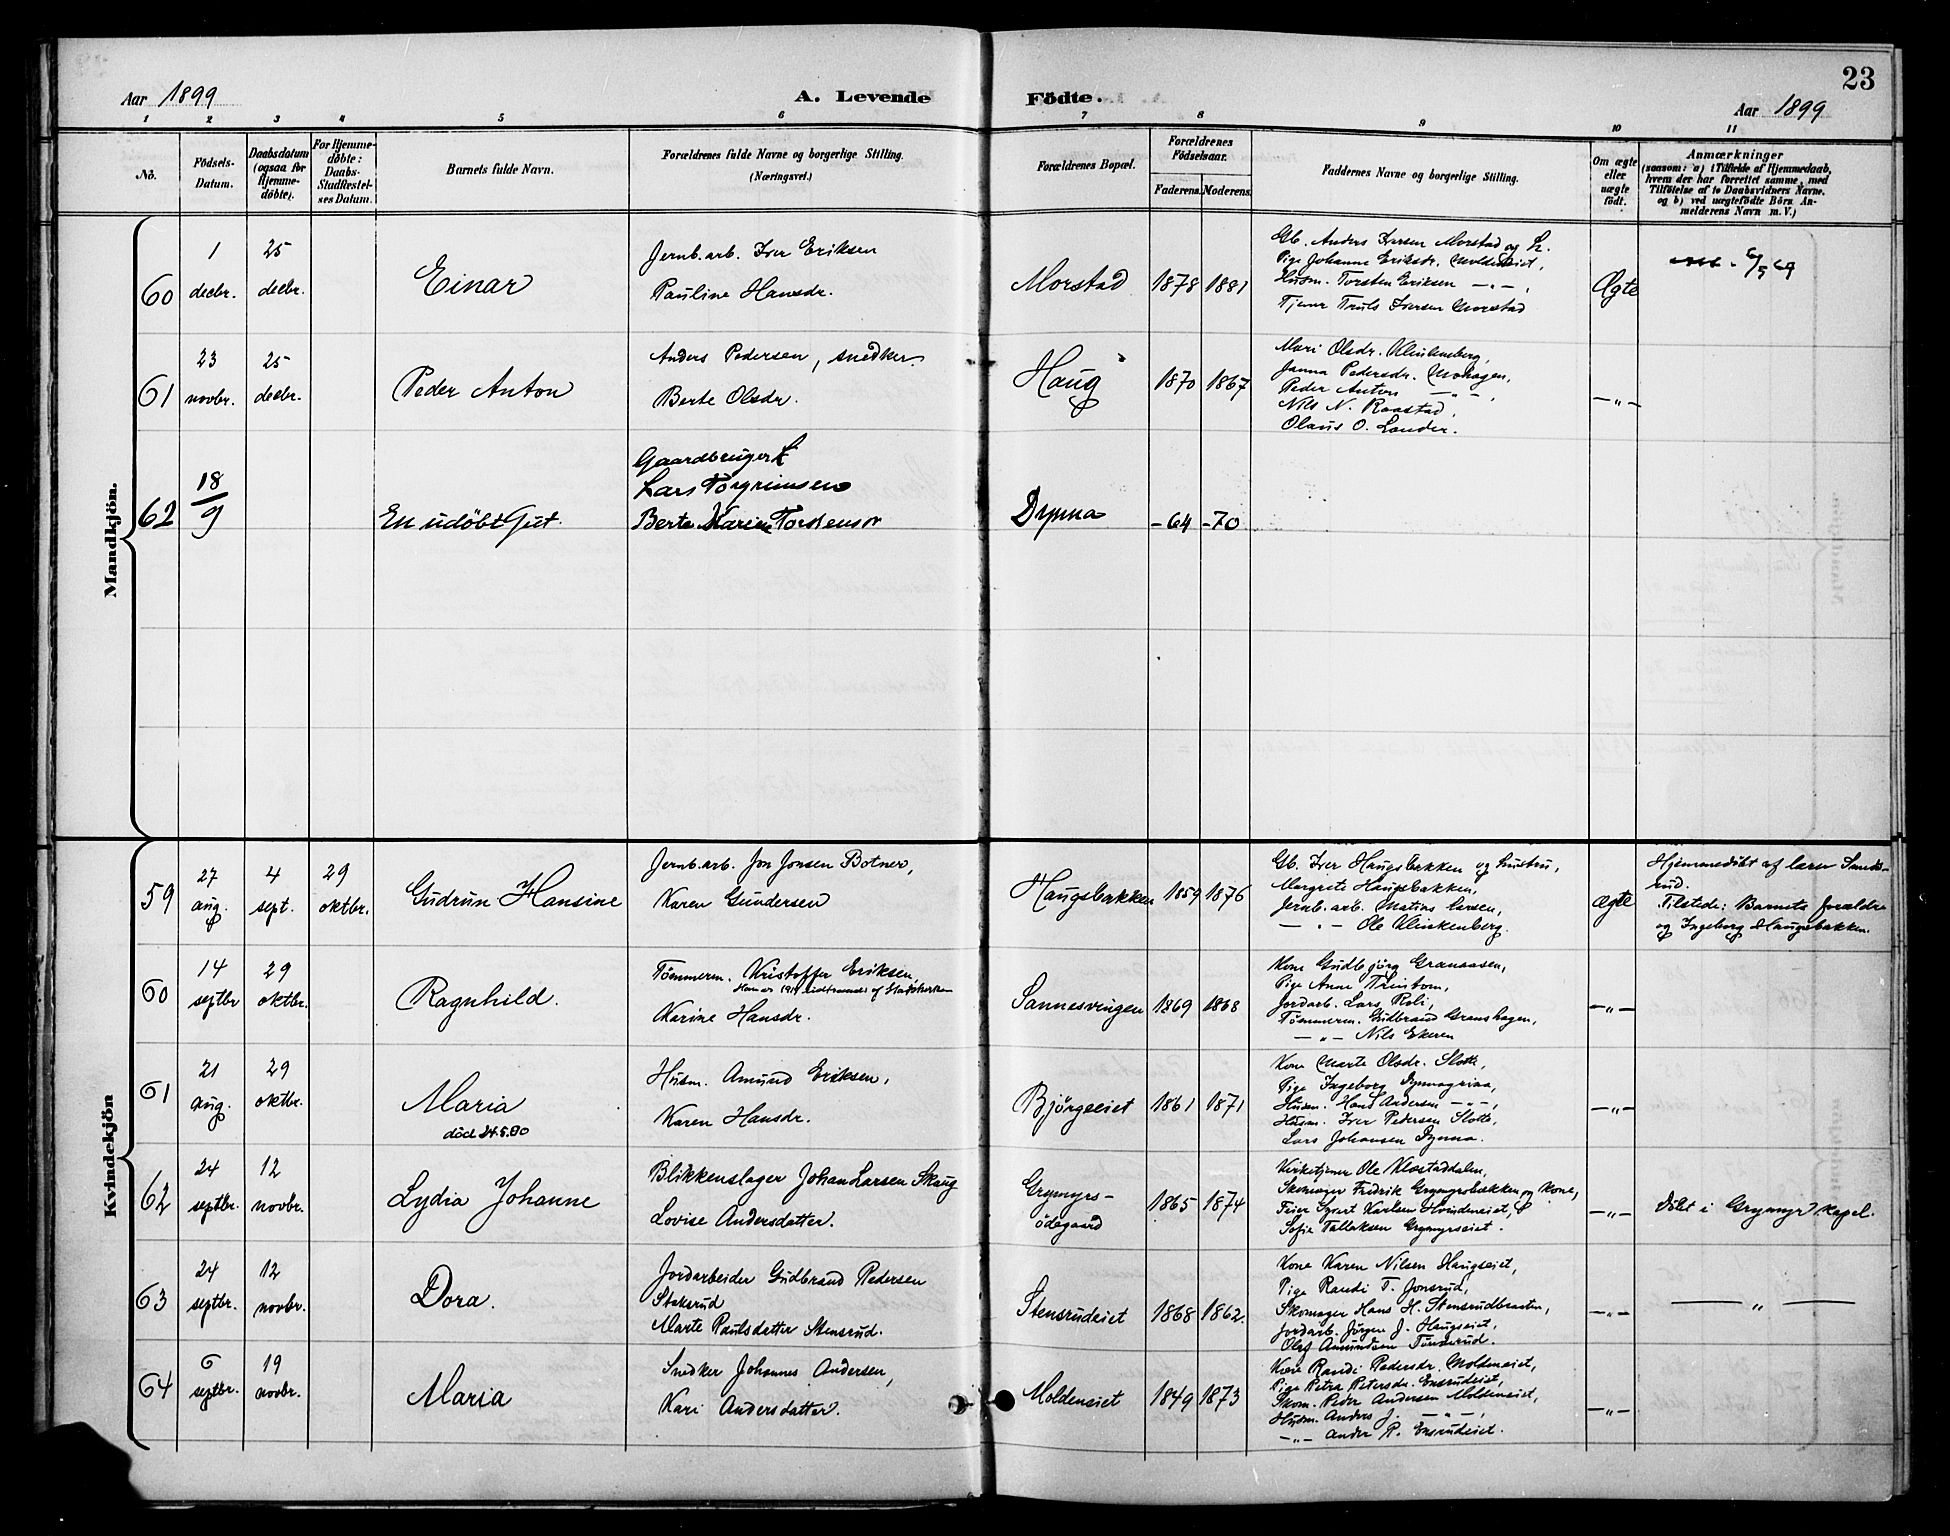 Aar 1899
A. Levende Födte.
23
Aar 1899
1 2 3 4 5 6 7 8 9 10 11
No.
Födsels-Datum.
Daabsdatum (ogsaa for Hjemme-döbte).
For Hjemme-döbte: Daabs-Stadfæstel-ses Datum.
Barnets fulde Navn.
Forældrenes fulde Navne og borgerlige Stilling. (Næringsvei.)
Forældrenes Bopæl.
Forældrenes Födselsaar.
Faderens. Moderens.
Faddernes Navne og borgerlige Stilling.
Om ægte eller uægte födt.
Anmærkninger
(saasom: a) i Tilfælde af Hjemmedaab,
hvem der har forrettet samme, med
Tilföielse af to Daabsvidners Navne,
og b) ved uægtefödte Börn An-
melderens Navn m. V.)
Mandkjön.
60
1 decbr.
25 decbr.
Einar
Jernb.arb. Iver Eriksen
Pauline Hansdr.
Morstad
1878 1881
Gb. Anders Iversen Morstad og
Pige Johanne Eriksdr. Moldeneiet,
Husm. Torsten Eriksen —"—,
Tjener Truls Iversen Morstad
Ægte
61
23 novbr.
25 decbr.
Peder Anton
Anders Pedersen, snedker
Berte Olsdr.
Haug
1870 1867
Mari Olsdr. Klinkenberg,
Janna Pedersdr. Mohagen,
Peder Anton —"—,
Nils N. Raastad,
Olaus O. Lander.
—"—
62
18/9
En udöbt Gut.
Gaardbruger
Lars Torgrimsen
Berte Karine Torstensdr
Dynna
-64 -70
Kvindekjön
59
27 aug.
4 sept.
29 oktbr.
Gudrun Hansine
Jernb.arb. Jon Jonsen Botner,
Karen Gundersen
Haugsbakken
1859 1876
Gb. Iver Haugsbakken og hustru,
Margrete Haugsbakken,
Jernb.arb. Matias Larsen,
—"— Ole Klinkenberg.
Ægte
Hjemmedöbt af lærer
rud.
Tilstede: Barnets forældre
og Ingeborg Haugsbakken.
60
14 septbr
29 oktbr.
Ragnhild.
Tömmerm. Kristoffer Eriksen,
Karine Hansdr.
Sannesvingen
1869 1868
Kone Gudbjörg Granaasen,
Pige Anne
Jordarb. Lars Roli,
Tömmerm. Gudbrand Granshagen,
—"— Nils Ekeren
—"—
61
21 aug.
29 oktbr.
Maria
död 24.5.80
Husm. Amund Eriksen,
Karen Hansdr.
Bjørgeeiet
1861 1871
Kone Marte Olsdr. Slotte,
Pige Ingeborg
Husm. Hans Andersen —"—,
Husm. Iver Pedersen Slotte,
Lars Johansen Dynna.
—"—
62
24 septbr.
12 novbr.
Lydia Johanne
Blikkenslager Johan Larsen Skaug
Lovise Andersdatter.
Grymyrs-
ödegaard
1865 1874
Kirketjener Ole Klæstaddalen,
Skomager Fredrik Grymyrsbakken og kone,
Feier Syvert Karlsen Hvindeneiet,
Sofie Tallaksen Grymyrseiet.
—"—
Döbt i Grymyr kapel.
63
24 septbr.
12 novbr.
Dora.
Jordarbeider Gudbrand Pedersen
Staksrud
Marte Paulsdatter Stensrud.
Stensrudeiet
1868 1862
Kone Karen Nilsen Haugseiet,
Pige Randi T. Jonsrud,
Skomager Hans H. Stensrudbraaten,
Jordarb. Jörgen J. Haugseiet,
Olaf Amundsen Tönnerud.
—"—
—"—
64
6 septbr.
19 novbr.
Maria
Snedker Johannes Andersen,
Kari Andersdatter.
Moldeneiet
1849 1873
Kone Randi Pedersdr. Moldeneiet,
Pige Petra Petersdr. Ensrudeiet,
Skom. Peder Andersen Moldeneiet,
Husm. Anders J. —"—,
—"— Ander P. Ensrudeiet.
—"—